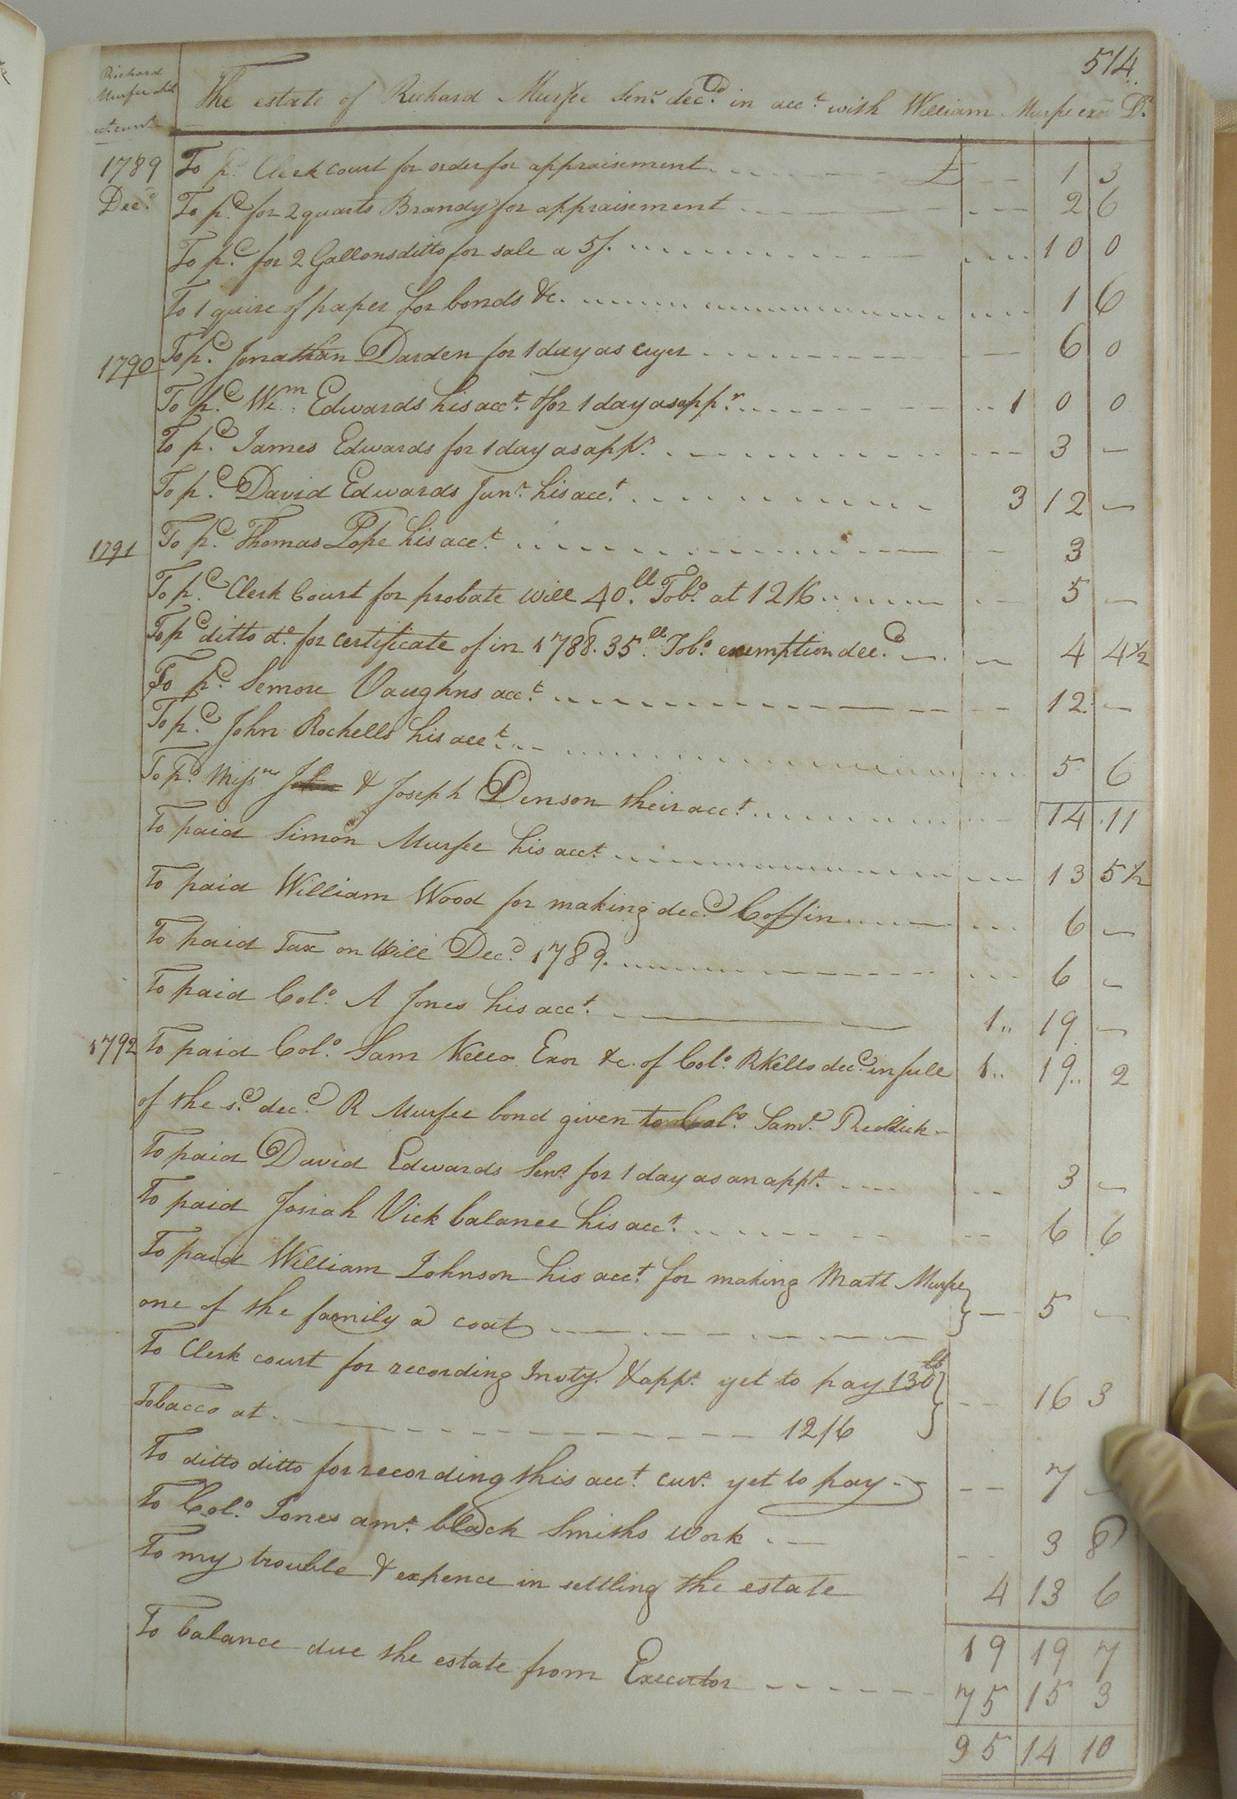 514.
Richard
Murfee
The estate of Richard Murfee Senr. decd. in acct. with William Murfee exor Dr.
1789 To pd. Clerk court for order for appraisement £ - 1 3
Decr. To pd. for 2 quarts Brandy for appraisement 2 6
To pd. for 2 Gallons ditto for sale a 5/. 10 0
To 1 quire of paper for bonds &c. 1 6
1790 To pd. Jonathan Darden for 1 day as cryer 6 0
To pd. Wm. Edwards his acct. & for 1 day as appr. 1 0 0
To pd. James Edwards for 1 day as appr. 3 -
To pd. David Edwards Junr. his acct. 3 12 -
1791 To pd. Thomas Pope his acct. 3
To pd. Clerk Court for probate will 40 lb. Tobo. at 12/6 5 -
To pd ditto do. for certificate of in 1788. 35 lb. Tobo. exemption decd. 4 4½
To pd. Semore Vaughns acct. 12 -
To pd. John Rochells his acct. 5 6
To pd. Messrs John & Joseph Denson their acct. 14 .11
To paid Simon Murfee his acct. 13 5½
To paid William Wood for making decd. Coffin 6 -
To paid Tax on Will Decd. 1789. 6 -
To paid Colo. A Jones his acct. 1.. 19 -
1792 To paid Colo. Sam Kello Exor &c. of Colo. R Kello decd in full 1.. 19.. 2
of the sd. decd. R Murfee bond given to Colo. Saml. Reddick -
To paid David Edwards Senr. for 1 day as an appr. 3 -
To paid Josiah Vick balance his acct. 6 6
To paid William Johnson his acct. for making Matt Murfee
one of the family a coat 5 -
To Clerk court for recording Invty. & appt. yet to pay 130 lb
Tobacco at 12/6 16 3
To ditto ditto for recording this acct. cur. yet to pay - 7 -
To Colo. Jones amt. black Smiths work 3 8
To my trouble & expence in settling the estate 4 13 6
19 19 7
To balance due the estate from Executor 75 15 3
95 14 10